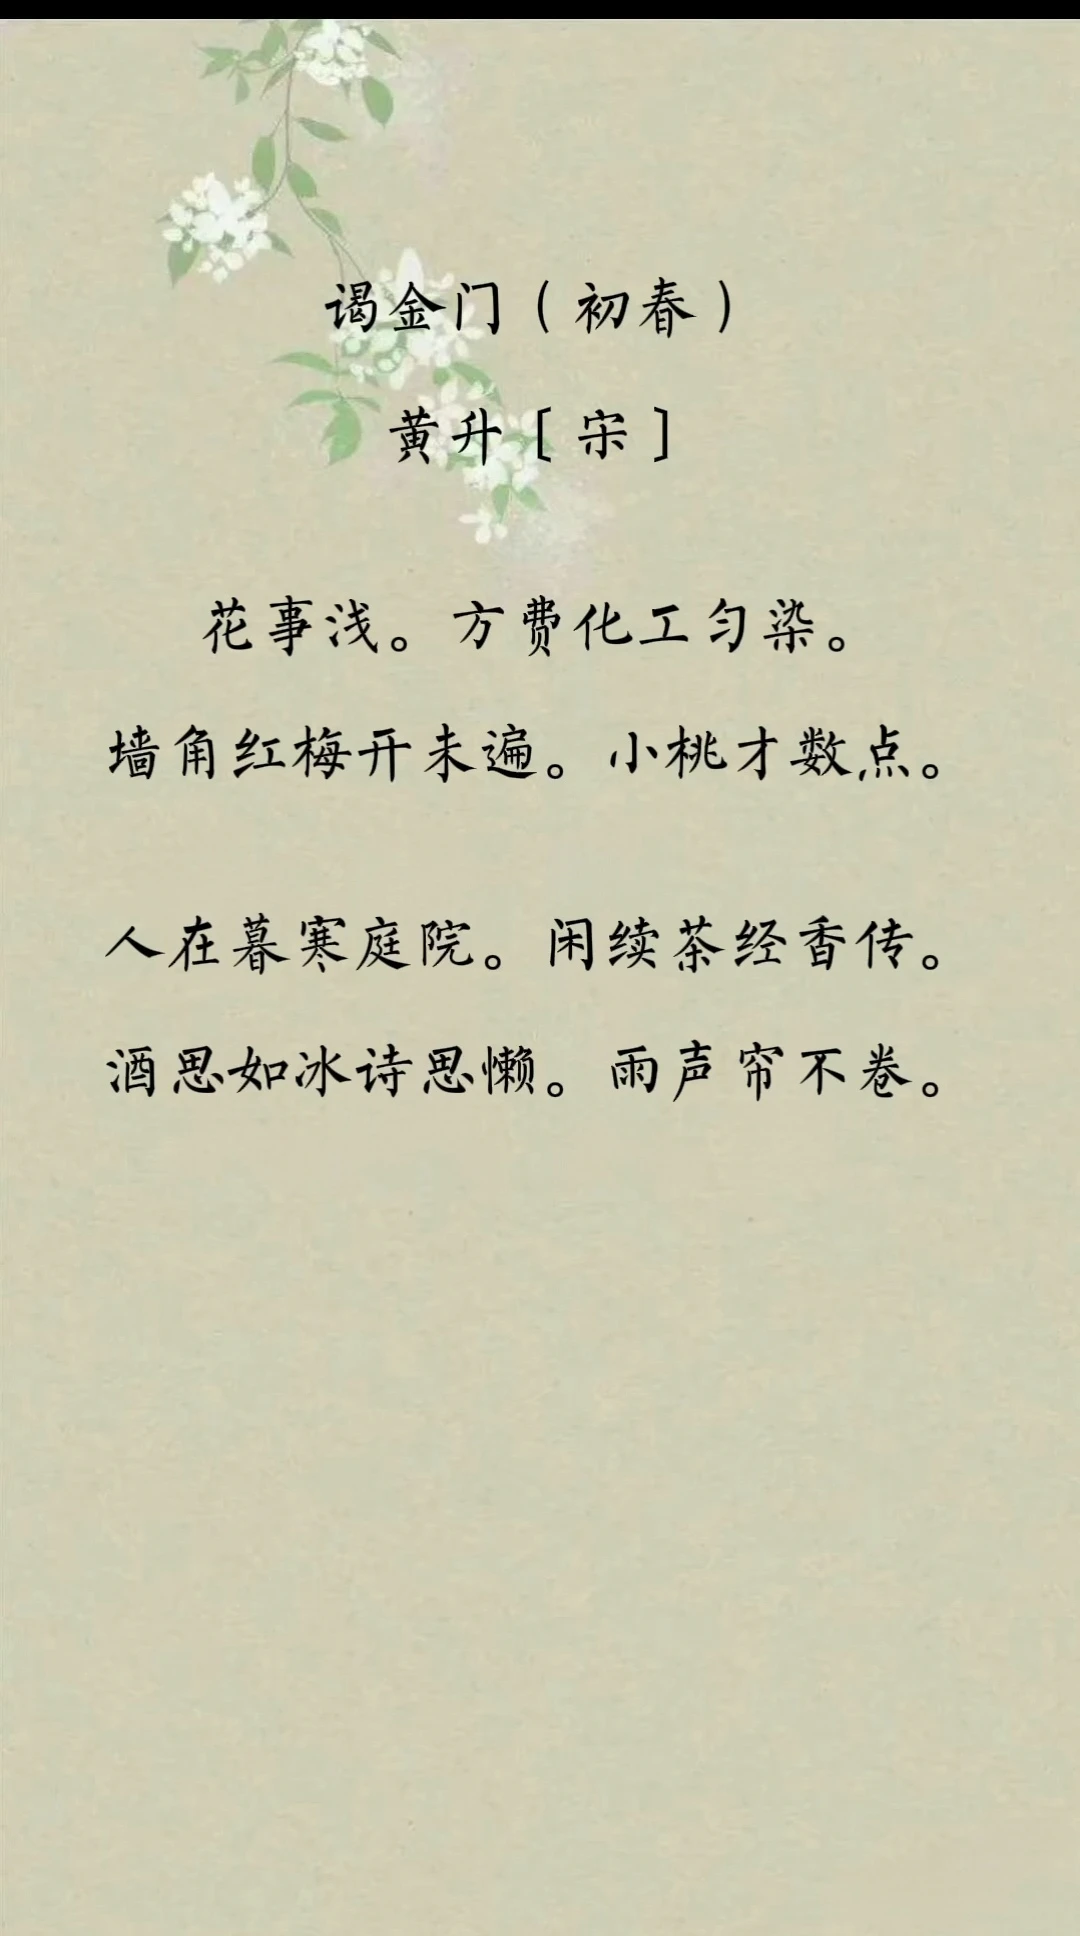 谒金门（初春）
黄升［宋］
花事浅。方费化工匀染。
墙角红梅开未遍。小桃才数点。
人在暮寒庭院。闲续茶经香传。
酒思如冰诗思懒。雨声帘不卷。